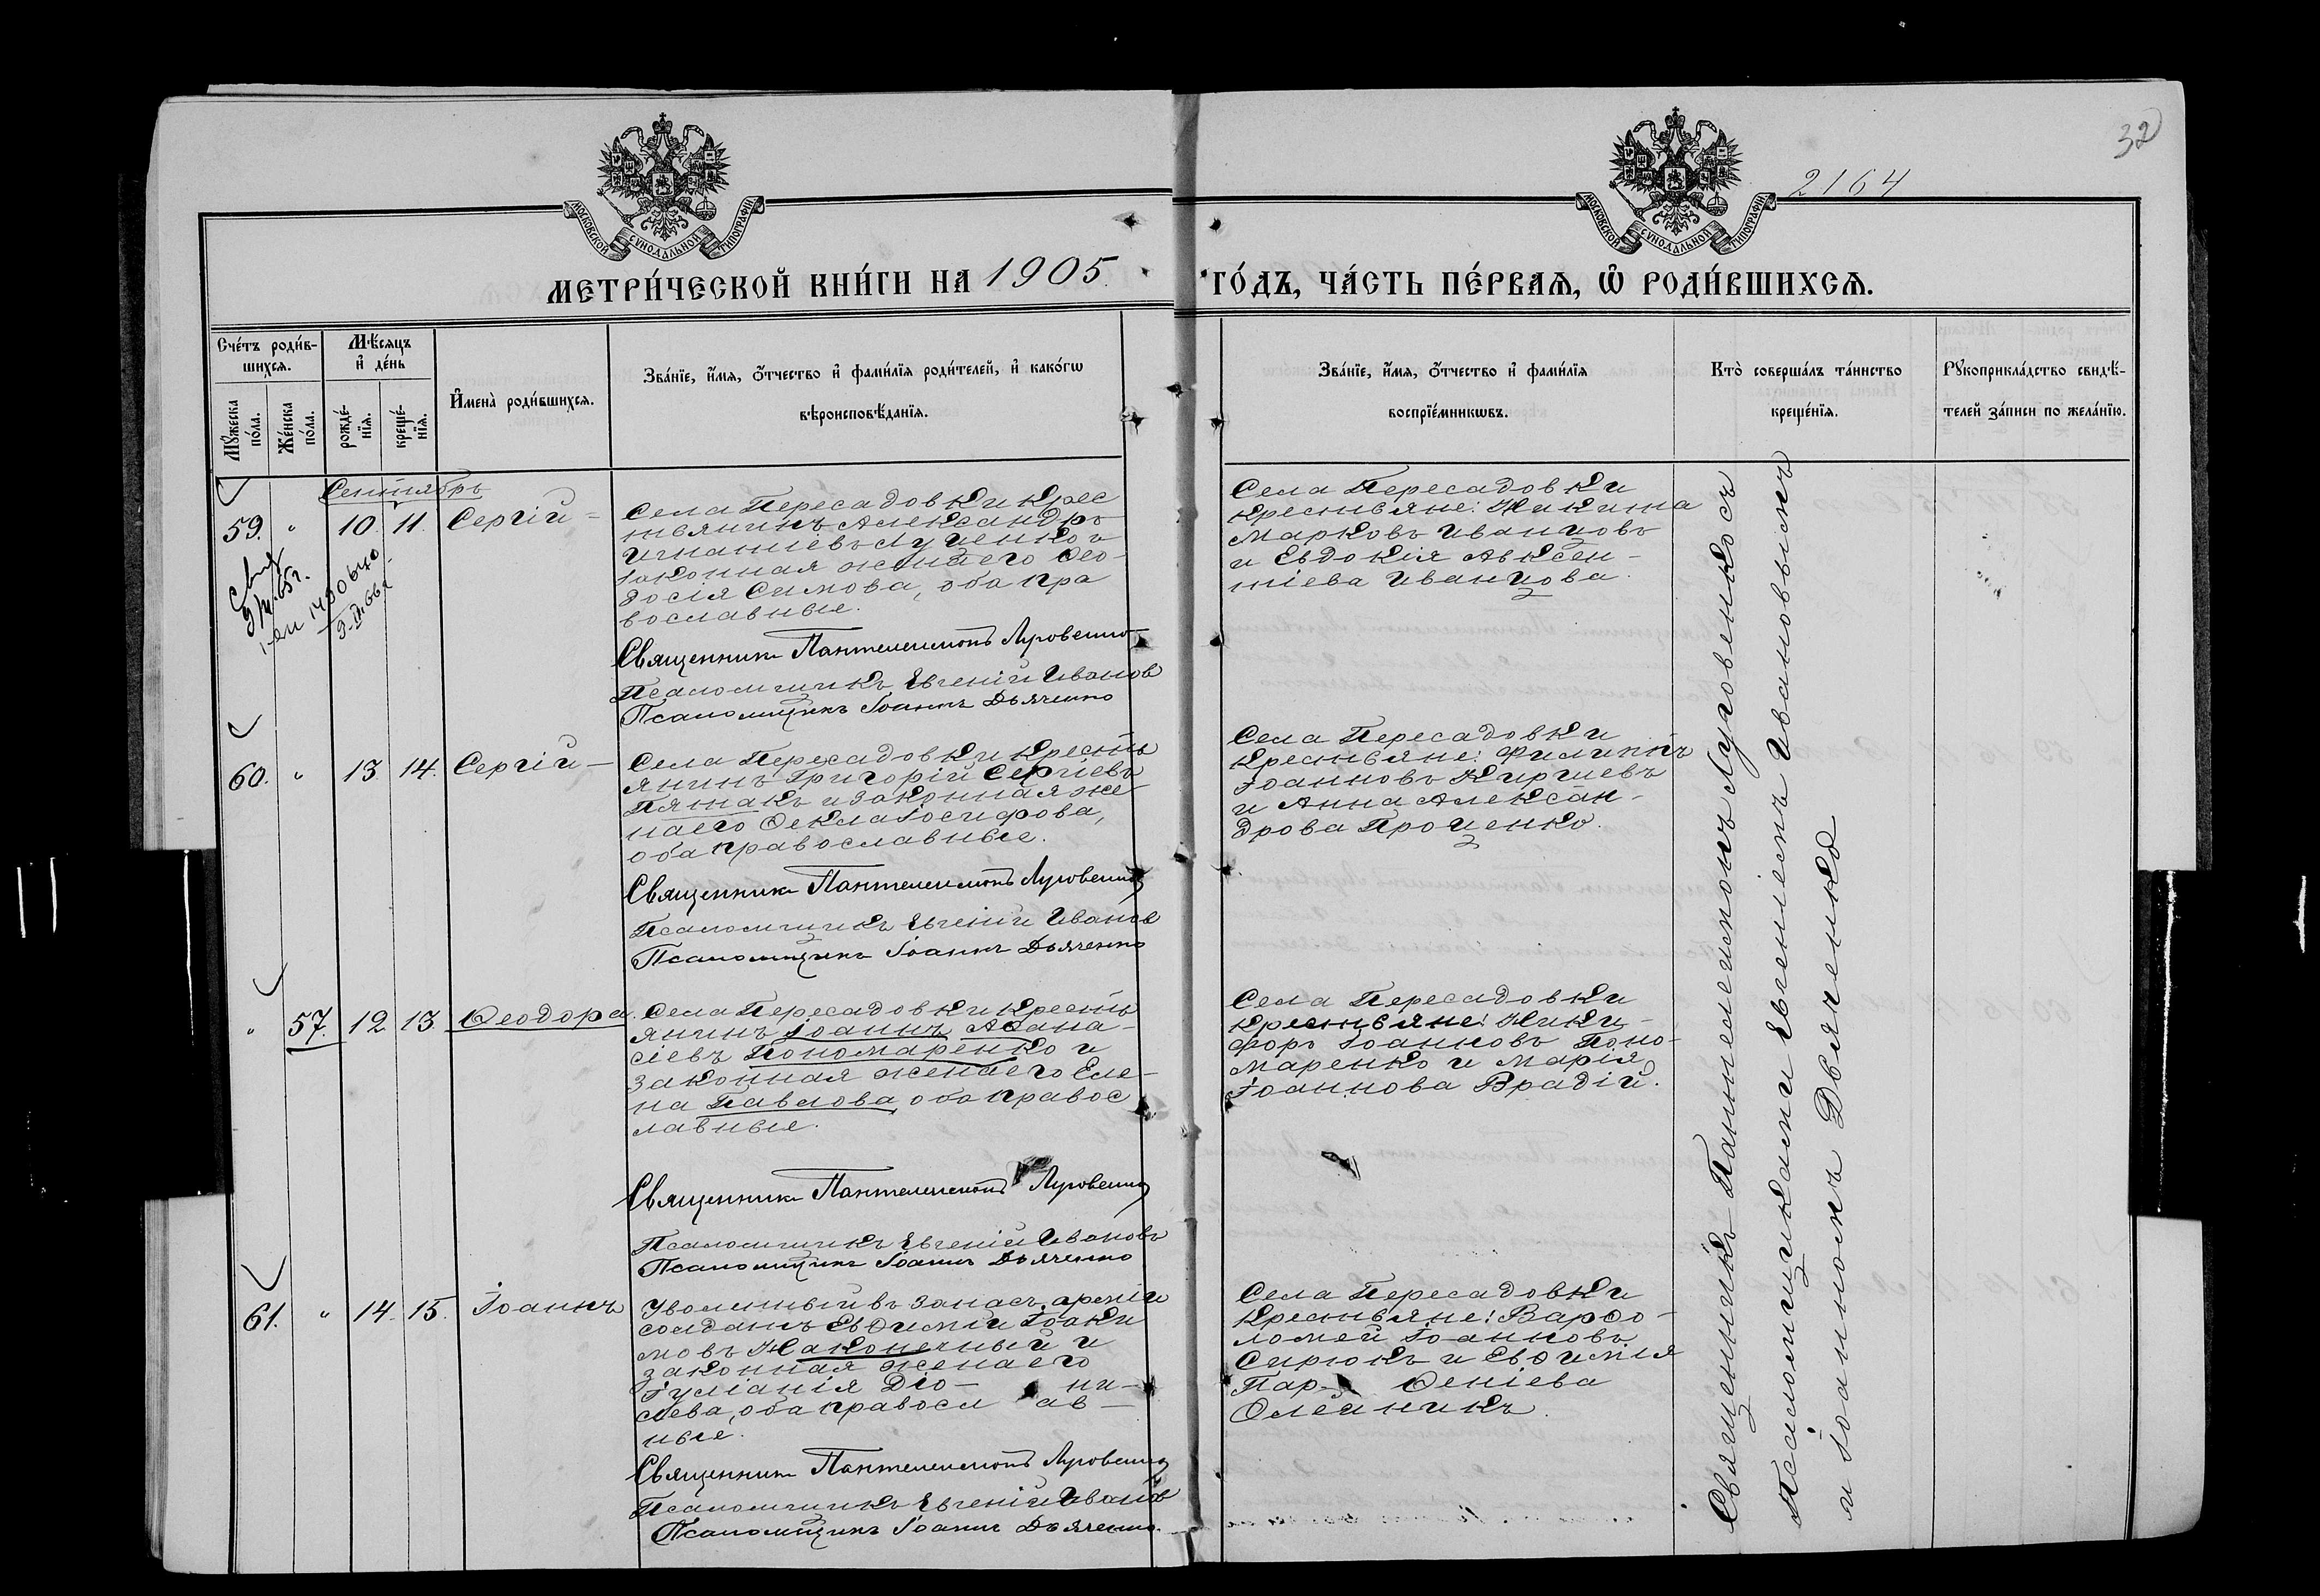 32
2164
МОСКОВСКОЙ СУНОДАЛЬНОЙ ТИПОГРАФІИ
МОСКОВСКОЙ СУНОДАЛЬНОЙ ТИПОГРАФІИ
МЕТРИ́ЧЕСКОЙ КНИ́ГИ НА 1905.
ГО́ДЪ, ЧА́СТЬ ПЕ́РВАѦ, Ѽ РОДИ́ВШИХСѦ.
Сче́тъ роди́в-
шихсѧ.
Мꙋ́жеска по́ла.
Же́нска по́ла.
Мѣ́сѧцъ
и҆ де́нь
рожде́-
нїѧ.
креще́-
нїѧ.
И҆мена̀ роди́вшихсѧ.
Зва́нїе, и҆́мѧ, ѻ҆́тчество и҆ фами́лїѧ роди́телей, и҆ како́гѡ
вѣроисповѣ́данїѧ.
Зва́нїе, и҆́мѧ, ѻ҆́тчество и҆ фами́лїѧ
воспрїе́мникѡвъ.
Кто̀ соверша́лъ та́инство
креще́нїѧ.
Рꙋкоприкла́дство свидѣ́-
телей за́писи по жела́нїю.
Сентябрь
59. " 10. 11. Сергій
Села Пересадовки крес
тьянинъ Александръ
Игнатіевъ Луценко и
законная жена его Ѳео-
досія Симова, оба пра
вославные.
Священник Пантелеимонъ Луговенко
Псаломщикъ Евгеній Иванов
Псаломщикъ Іоаннъ Дьяченко
Села Пересадовки
крестьяне: Никита
Марковъ Иванцовъ
и Евдокія Авксен-
тіева Иванцова.
60. " 13. 14. Сергій
Села Пересадовки кресть
янинъ Григорій Сергіевъ
Пятакъ и законная же-
на его Ѳекла Іосифова,
оба православные.
Священник Пантелеимонъ Луговенко
Псаломщикъ Евгеній Иванов
Псаломщикъ Іоаннъ Дьяченко
Села Пересадовки
крестьяне: Филиппъ
Іоанновъ Киргиевъ
и Анна Алексан-
дрова Проценко.
" 57. 12 13. Ѳеодора.
Села Пересадовки кресть
янинъ Іоаннъ Аѳана-
сіевъ Пономаренко и
законная жена его Еле-
на Павлова, оба правос
лавные.
Священник Пантелеимонъ Луговенко
Псаломщикъ Евгеній Ивановъ
Псаломщикъ Іоаннъ Дьяченко
Села Пересадовки
крестьяне: Ники-
форъ Іоанновъ Поно-
маренко и Марія
Іоаннова Врадій.
61. " 14. 15. Іоаннъ
Уволенный въ запасъ арміи
солдатъ Евѳимій Іоаки
мовъ Наконечный и
законная жена его
Іуліанія Діо- ни-
сіева, оба правосл ав-
ные.
Священник Пантелеимонъ Луговенко
Псаломщикъ Евгеній Иванов
Псаломщикъ Іоаннъ Дьяченко.
Села Пересадовки
крестьяне: Варѳо-
ломей Іоанновъ
Сирюкъ и Евѳимія
Пар- ѳеніева
Олейникъ.
Священникъ Пантелеимонъ Луговенко съ
псаломщиками Евгеніемъ Ивановымъ
и Іоанномъ Дьяченко